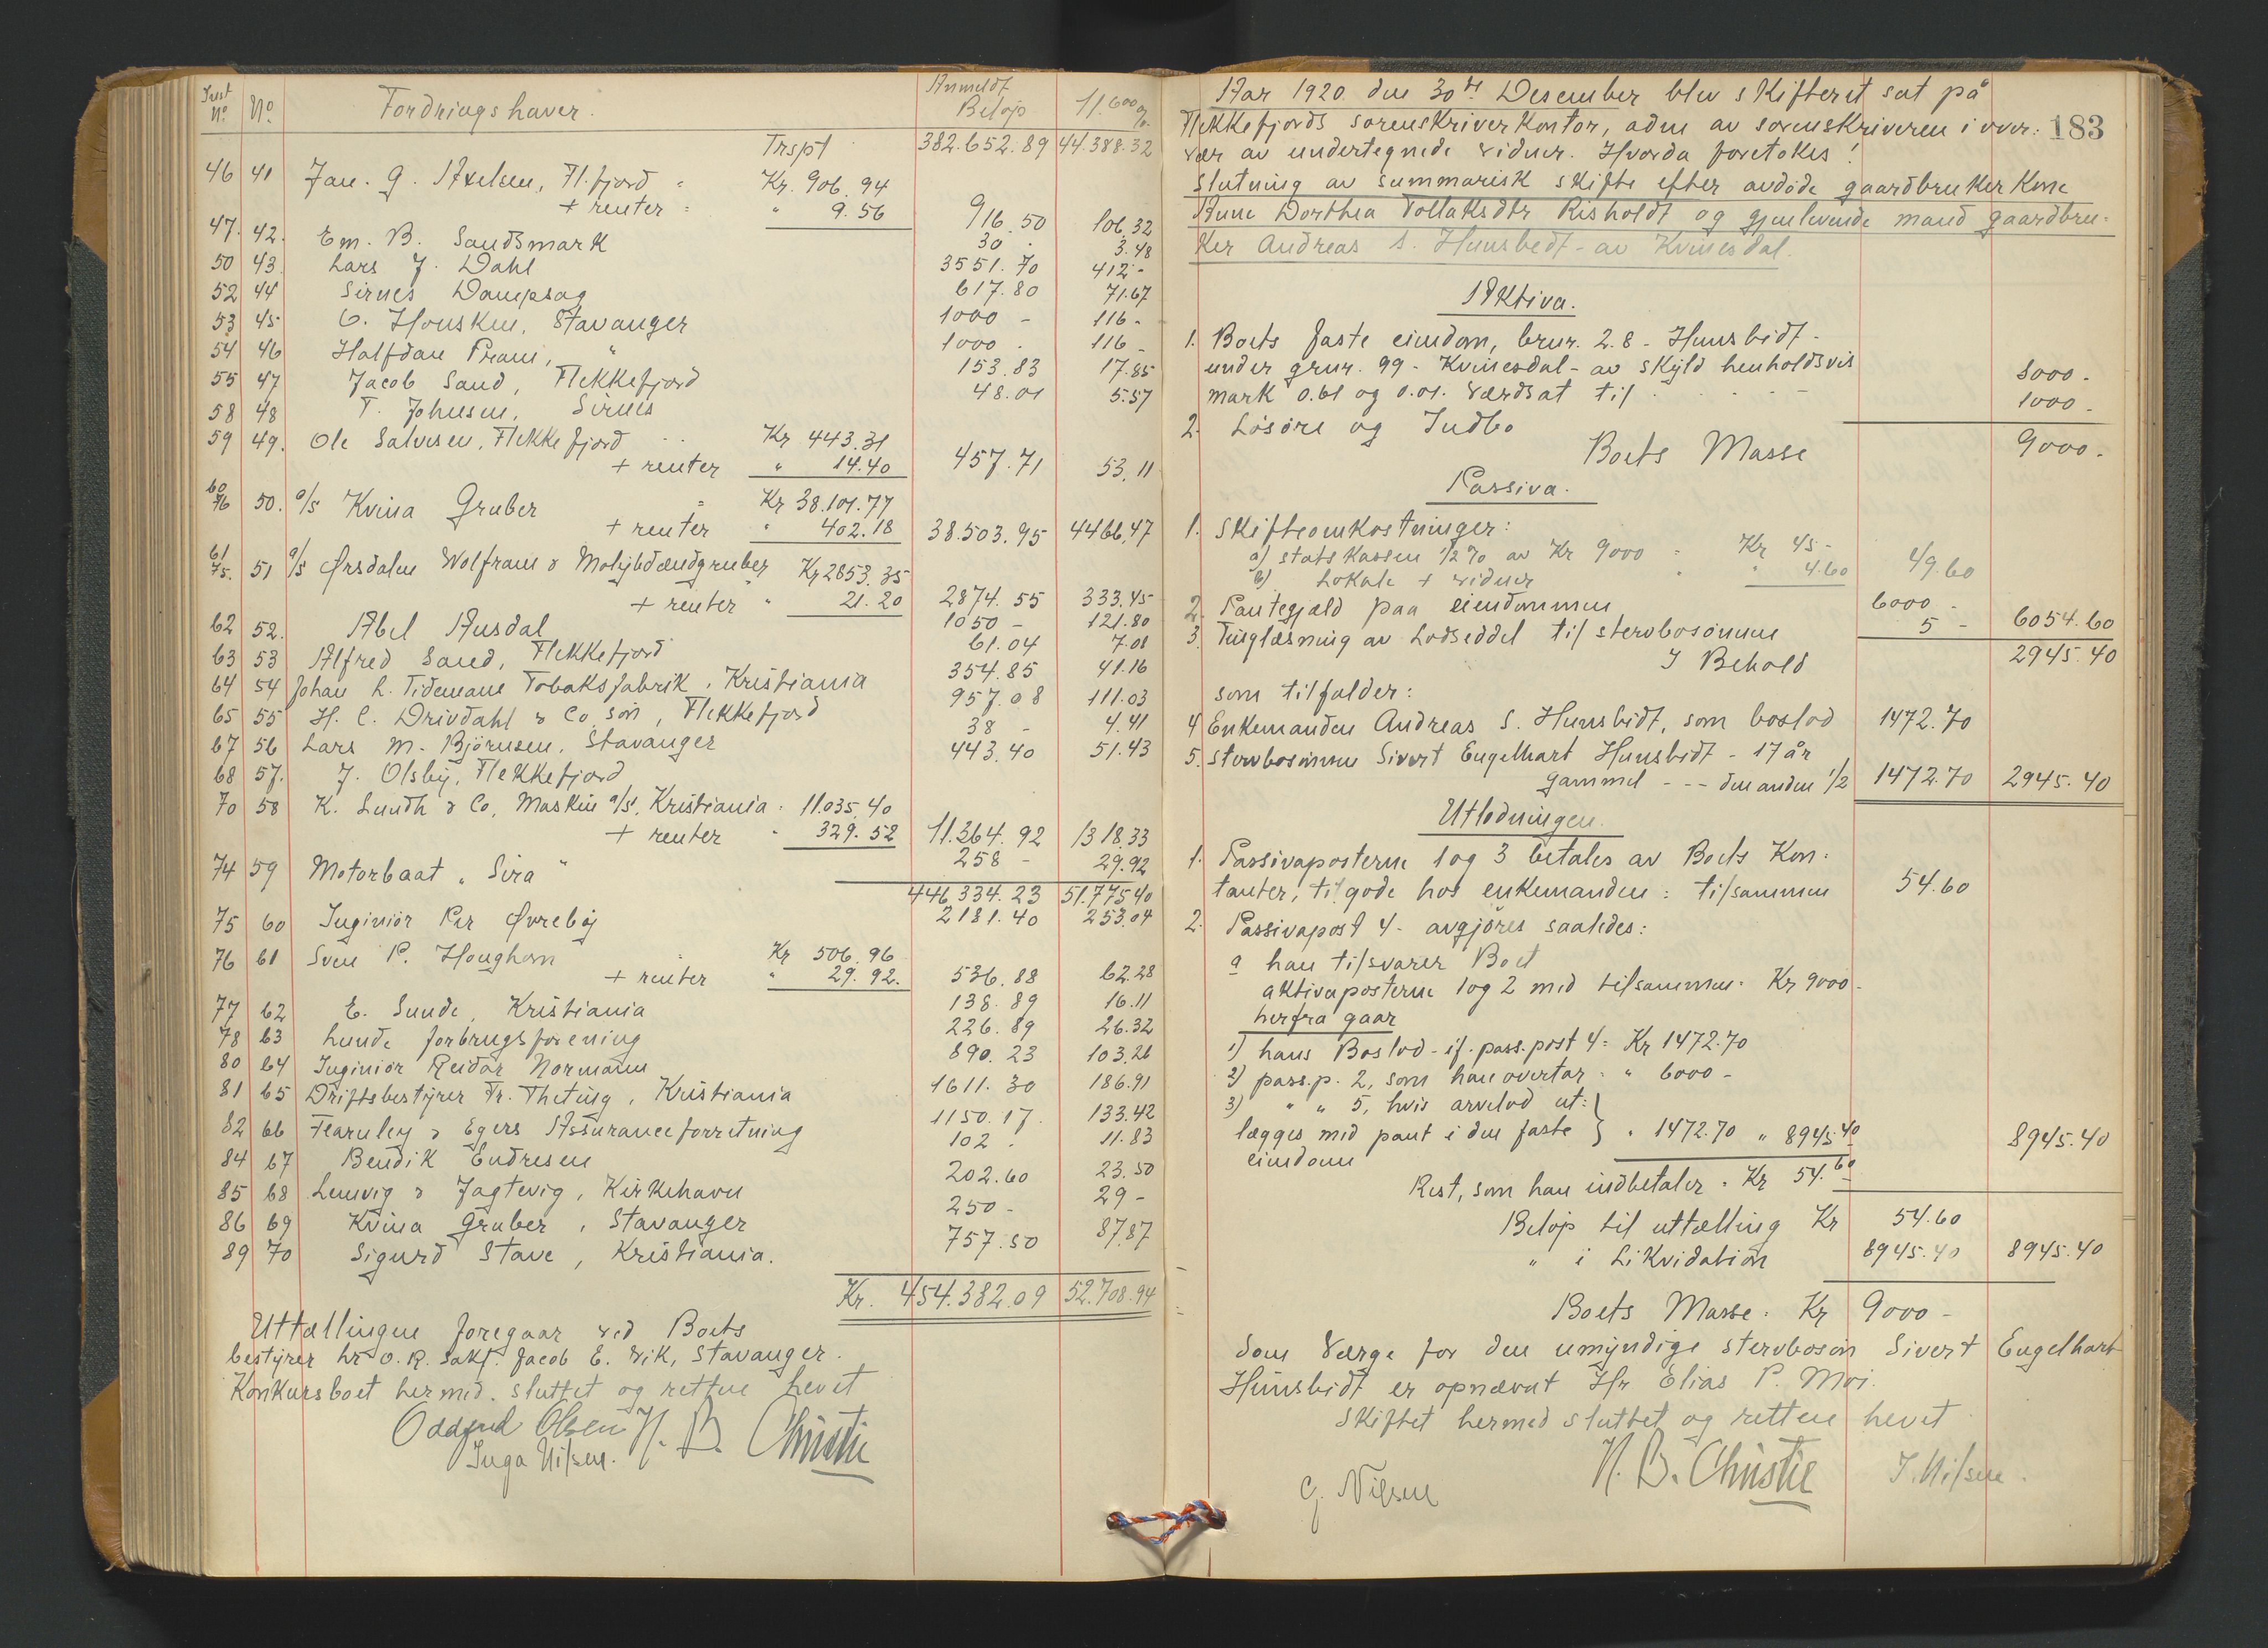 Inst No. No. Fordringshaver. Anmeldt Beløp 11.600 %
Trspt 382.652.89 44.388.32
46 41 Jan. G. Axelsen, Fl.fjord = Kr. 906.94
+ renter = " 9.56 916.50 106.32
47. 42. Em. B. Sandsmark 30. 3.48
50 43. Lars J. Dahl 3551.70 412-
52 44 Sirnes Dampsag 617.80 71.67
53 45 O. Housken, Stavanger 1000 - 116-
54 46 Halfdan Pram, " 1000. 116-
55 47 Jacob Sand, Flekkefjord 153.83 17.85
58 48 T. Johnsen, Sirnes 48.01 5.57
59 49. Ole Salvesen, Flekkefjord Kr 443.31
+ renter " 14.40 457.71 53.11
60 76 50. a/s Kvina Gruber = Kr 38.101.77
+ renter " 402.18 38.503.95 4466.47
61 75. 51 a/s Ørsdalen Wolfram & Molybdændgruber Kr 2853.35
+ renter " 21.20 2874.55 333.45
62 52. Abel Ausdal 1050 - 121.80
63 53 Alfred Sand, Flekkefjord 61.04 7.08
64 54 Johan L. Tidemans Tobaksfabrik, Kristiania 354.85 41.16
65 55 H. C. Drivdahl & Co søn, Flekkefjord 957.08 111.03
67 56 Lars M. Bjørnsen, Stavanger 38 - 4.41
68 57. J. Olsby, Flekkefjord 443.40 51.43
70 58 K. Lundh & Co, Maskin a/s, Kristiania. 11.035.40
+ renter " 329.52 11.364.92 1318.33
74 59 Motorbaat „Sira" 258 - 29.92
446.334.23 51.775.40
75 60 Ingeniør Per Øvrebø 2181.40 253.04
76 61 Sven P. Haughom Kr 506.96
+ renter " 29.92. 536.88 62.28
77 62 E. Sunde, Kristiania 138.89 16.11
78 63 Lunde forbrugsforening 226.89 26.32
80 64 Ingeniør Reidar Normann 890.23 103.26
81 65 Driftsbestyrer Fr. Theting, Kristiania 1611.30 186.91
82 66 Fearnley & Egers Assuranceforretning 1150.17. 133.42
84 67 Bendik Endresen 102. 11.83
85 68 Lemvig & Jagtevig, Kirkehavn 202.60 23.50
86 69 Kvina Gruber, Stavanger 250 - 29-
89 70 Sigurd Stave, Kristiania. 757.50 87.87
Kr. 454.382.09 52.708.94
Uttællingen foregaar ved Boets
bestyrer hr O.R. Sakf. Jacob E. Vik, Stavanger.
Konkursboet hermed sluttet og retten hevet
Oddfred Olsen N. B. Christie
Inga Nilsen.
183
Aar 1920 den 30te Desember blev skifteret sat på
Flekkefjords sorenskriverkontor, adm av sorenskriveren i over-
vær av undertegnede vidner. Hvorda foretokes:
Slutning av summarisk skifte efter avdøde gaardbrukerkone
Anne Dorthea Tollaksdtr Risholdt og gjenlevende mand gaardbru-
ker Andreas S. Hunsbedt - av Kvinesdal.
Aktiva.
1. Boets faste eiendom, brnr. 2.8 - Hunsbedt -
under grnr. 99 - Kvinesdal - av skyld henholdsvis
mark 0.61 og 0.01. Værdsat til 8000 -
2. Løsøre og Indbo 1000 -
Boets Masse 9000 -
Passiva.
1. Skifteomkostninger:
a) statskassen 1/2 % av Kr 9000 = Kr 45 -
b) Lokale + vidner " " 4.60 49.60
2. Pantegjæld paa eiendommen 6000 -
3. Tinglæsning av Lodseddel til stervbosønnen 5 - 6054.60
I Behold 2945.40
som tilfalder:
4 Enkemanden Andreas S. Hunsbedt, som boslod 1472.70
5. Stervbosønnen Sivert Engelhart Hunsbedt - 17 år
gammel - - - den anden 1/2 1472.70 2945.40
Utlodningen.
1. Passivaposterne 1 og 3 betales av Boets Kon-
tanter, tilgode hos enkemanden: tilsammen 54.60
2. Passivapost 4 - avgjøres saaledes:
a han tilsvarer Boet
aktivaposterne 1 og 2 med tilsammen. Kr 9000 -
herfra gaar
1) hans Boslod - jf. pass.post 4 = Kr 1472.70
2) pass.p. 2, som han overtar. " 6000 -
3) " " 5, hvis arvelod ut-
lægges med pant i den faste } " 1472.70 " 8945.40 8945.40
eiendom
Rest, som han indbetaler. Kr 54.60
Beløp til uttælling Kr 54.60
" i Likvidation 8945.40 8945.40
Boets Masse. Kr 9000 -
Som Værge for den umyndige stervbosøn Sivert Engelhart
Hunsbedt er opnævnt Hr Elias P. Moi.
Skiftet hermed sluttet og retten hevet
G. Nilsen N. B. Christie I. Nilsen.